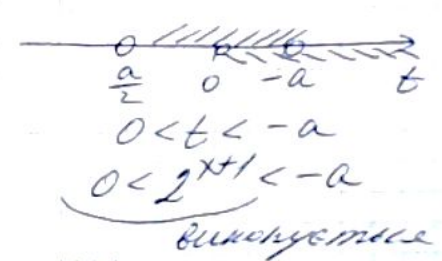 a/2 0 -a t
0 < t < -a
0 < 2^{x+1} < -a
виконується